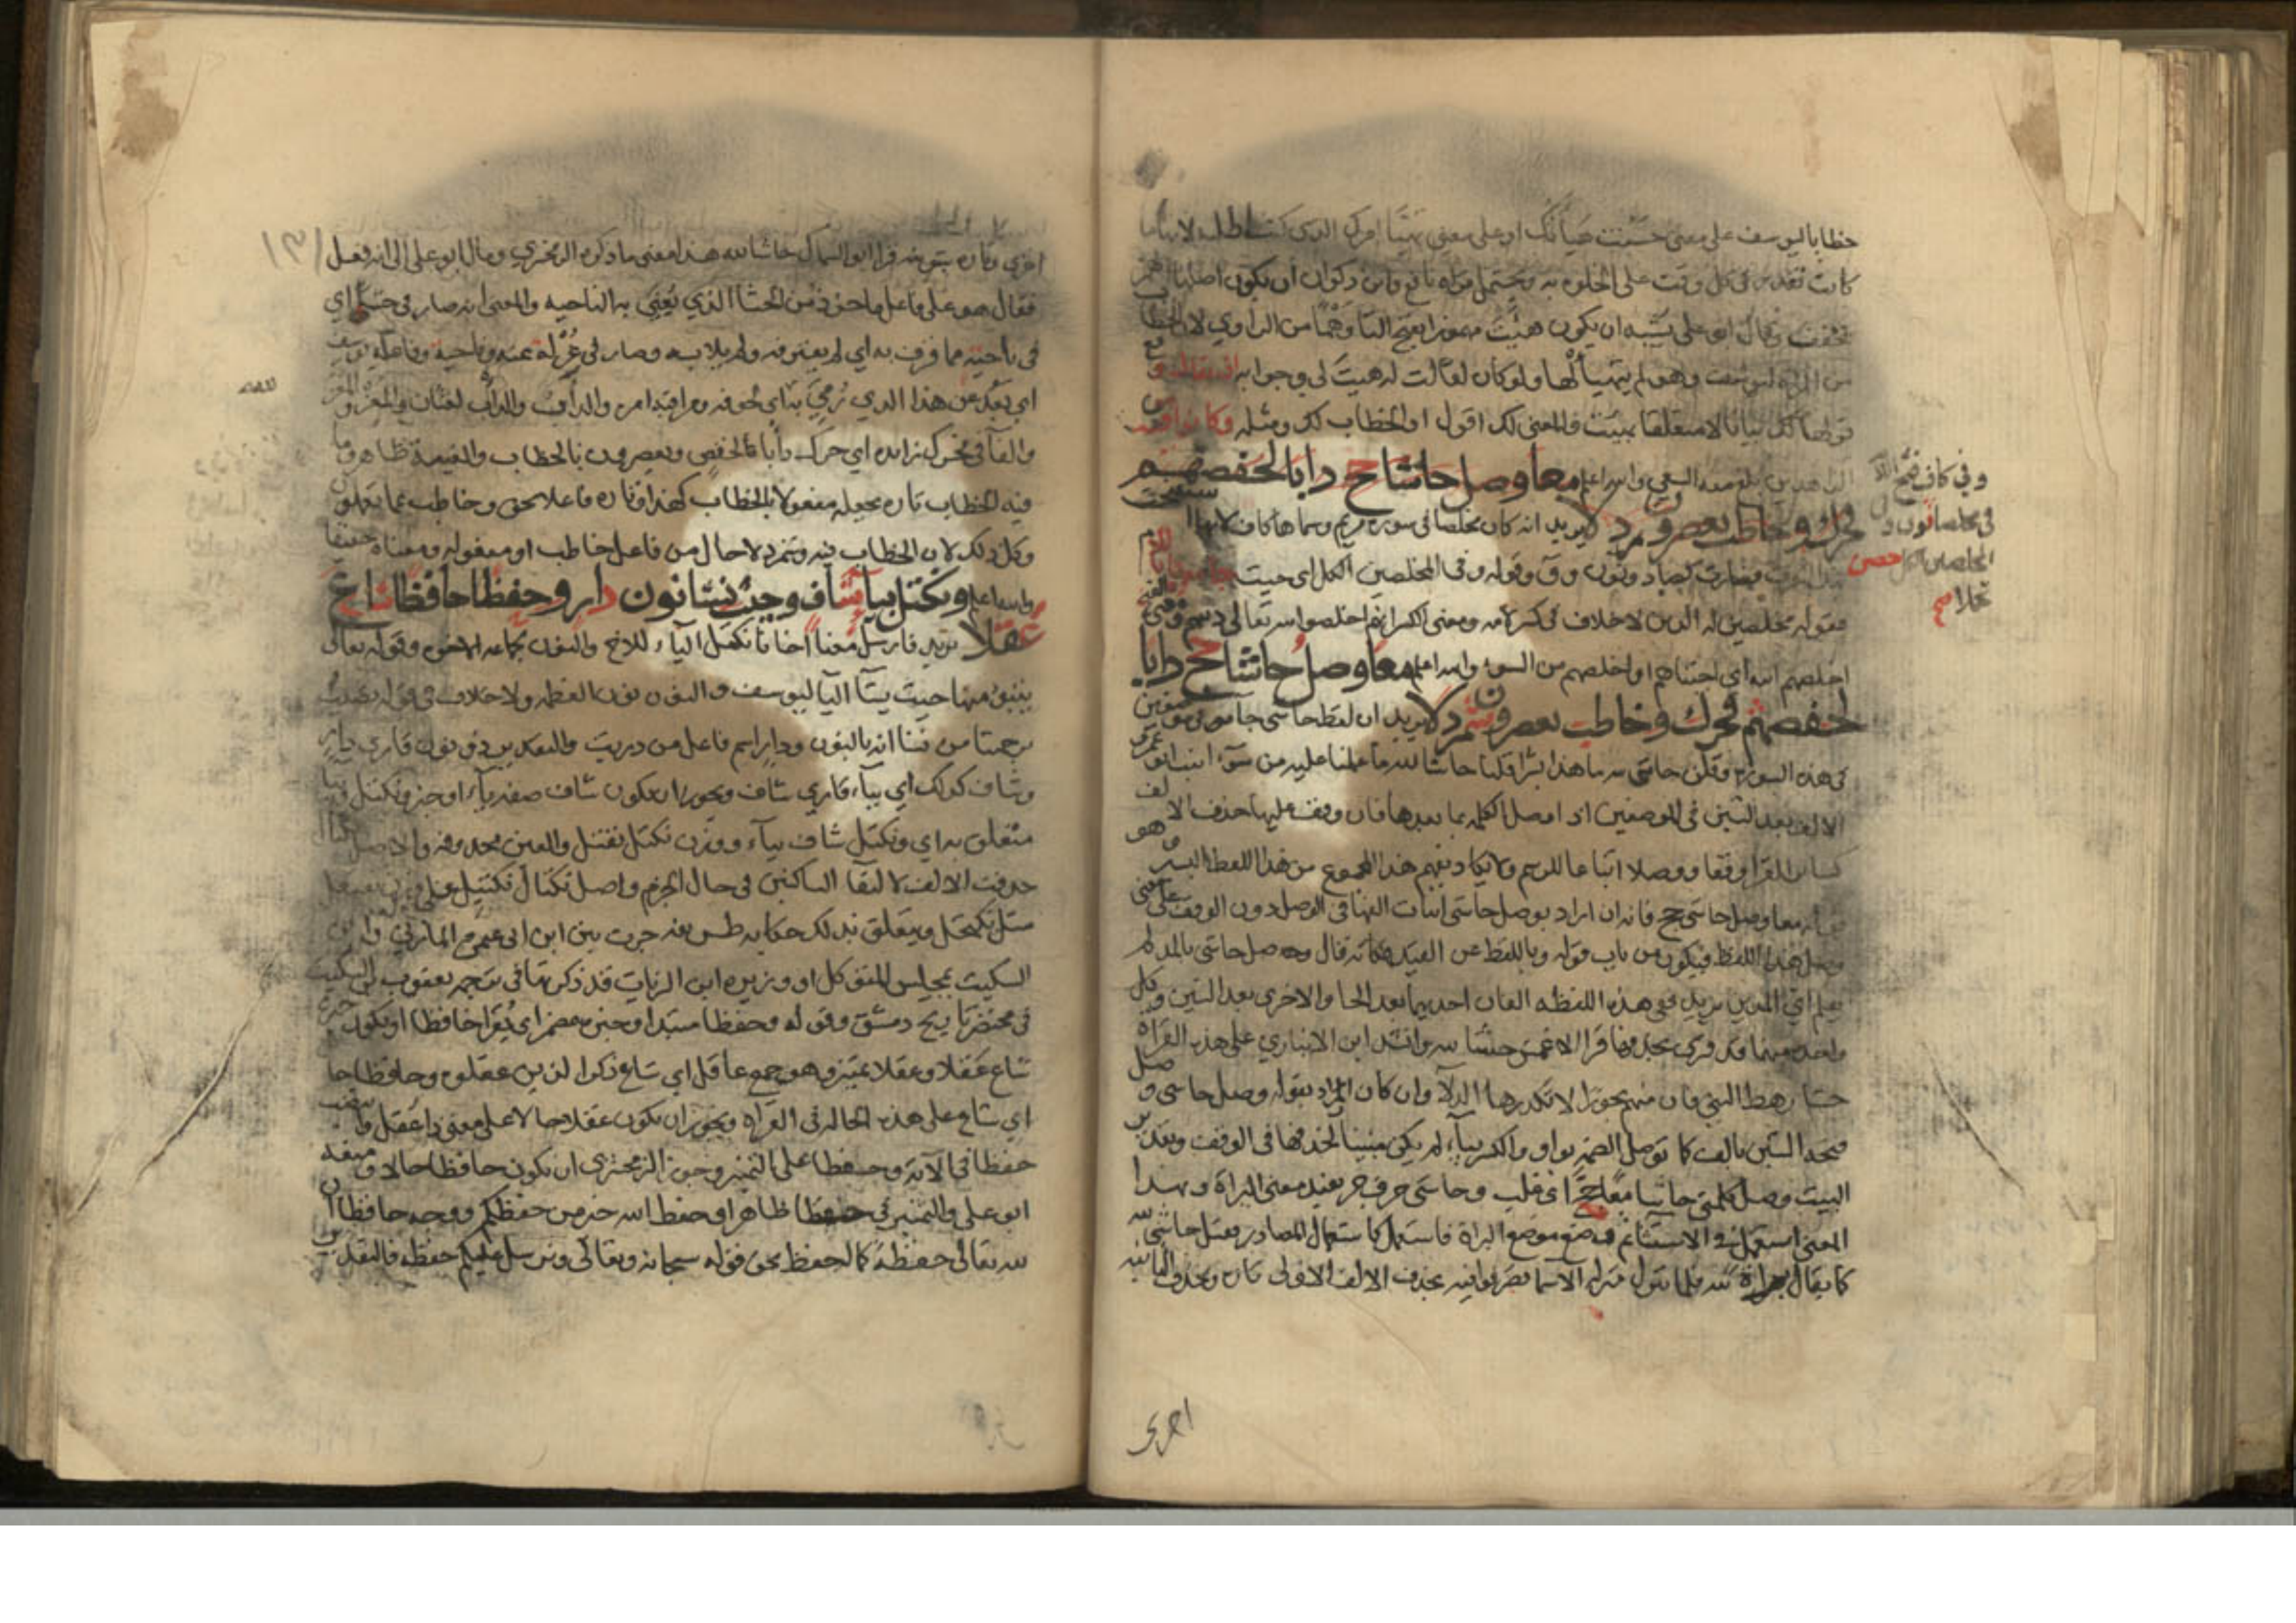 خطابا ليوسف على معنى حسنت هيأتك او على معنى تهيا امرك الذي كنت اطلبه لانها ما
كانت تقدر في كل وقت على الخلوة به ويحتمل قراة نافع وابن ذكوان ان يكون اصلها الهمز
فخففت وقال ابو على يشبه ان يكون هئت مهموزا بفتح التا وهما من الراوي لان الخطا
من المراة ليوسف وهو لم يتهيا لها ولو كان لقالت له هيت لي وجوابه
قولها لك بيانا لا متعلقا بهيت فالمعنى لك اقول او الخطاب لك ومثله وكانوا فيه
الزاهدين بلغ معه السعي والله اعلم معا وصل حاشا حج دابا لحفصهم
فحرك وخاطب يعصرون شمردلا يريد انه كان مخلصا في سورة مريم وسماها كاف لانها
وفي كاف فتح اللا
في مخلصا ثوى و
المخلصين الكل حصن
تجملا صح
فصارت كصاد ونون وق وقوله وفي المخلصين الكل اي حيث
فقوله مخلصين له الدين لا خلاف في كسر لامه ومعنى الكسر انهم اخلصوا لله تعالى دينهم ومعنى
اخلصهم الله اي اجتباهم او اخلصهم من السوء والله اعلم معا وصل حاشا حج دابا
لحفصهم فحرك وخاطب يعصرون شمردلا يريد ان لفظ حاشى جا في موضعين
في هذه السورة وقلن حاش لله ما هذا بشرا قلن حاشا لله ما علمنا عليه من سوء اثبت ابو عمرو
الالف بعد الشين في الموضعين اذا وصل الكلمة بما بعدها فان وقف عليها حذف الالف
كسائر القرا وقفا ووصلا اتباعا للرسم ولا يكاد يفهم هذا المجموع من هذا اللفظ اليسير
معا وصل حاشى حج فانه ان اراد بوصل حاشى اثبات الفها في الوصل دون الوقف على معنى
وصل هذا اللفظ فيكون من باب قوله وباللفظ عن القيد فكانه قال وصل حاشى بالمد لم
يعلم اي المدين يريد ففي هذه اللفظة الفان احديهما بعد الحا والاخرى بعد الشين وكل
واحدة منهما قد قرى بحذفها قرا الاعمش حشا لله وانشد ابن الانباري على هذه القراة
حشا رهط النبي فان منهم بحورا لا تكدرها الدلا وان كان المراد بقوله وصل حاشى وصل
فتحة الشين بالف كما توصل الضمة بواو والكسر بياء لم يكن مبينا لحذفها في الوقف وتقدير
البيت وصل كلمتي حاشا معا حج اي غلب وحاشى حرف جر يفيد معنى البراة وبهذا
المعنى استعمل في الاستثنا ثم وضع موضع البراة فاستعمل كاستعمال المصادر فقيل حاشى لله
كما يقال براة لله فلما تنزل منزلة الاسما تصرفوا فيه بحذف الالف الاولى تارة وبحذف الثانية
اخرى
اخرى وتارة بتنوينه قرا ابو السمال حاشا لله هذا معنى ما ذكره الزمخشري ومال ابو على الى انه فعل
فقال هو على فاعل ماخوذ من الحشا الذي يعنى به الناحية والمعنى انه صار في حشى اي
في ناحية مما قرف به اي لم يقترفه ولم يلابسه وصار في عزلة عنه وناحية وفاعله يوسف
اي بعد عن هذا الذي رمي به اي لخوفه ومراقبة امره والداب والداب لغتان كالمعز والمعز
والفا في فحرك زائدة اي حرك دابا لحفص ويعصرون بالخطاب والغيبة ظاهر وما
فيه الخطاب تارة يجعله مفعولا بالخطاب كهذا وتارة فاعلا نحو وخاطب عما يعملون
وكل ذلك لان الخطاب فيه وشمردلا حال من فاعل خاطب او مفعوله ومعناه خفيفا
والله اعلم ونكتل بيا شاف وحيث نشا نون دار وحفظا حافظا شاع
عقلا يريد فارسل معنا اخانا نكتل الياء للاخ والنون لجماعة الاخوة وقوله تعالى
يتبوا منها حيث يشا اليا ليوسف والنون نون العظمة ولا خلاف في قوله نصيب
برحمتنا من نشا انه بالنون ودار اسم فاعل من دريت والتقدير ذو نون قاري دار
وشاف كذلك اي بياء قاري شاف ويجوز ان يكون شاف صفة بياء او خبر ونكتل وبيا
متعلق به اي ونكتل شاف بياء ووزن نكتل نفتل والعين محذوفة والاصل نكتال
حذفت الالف لالتقا الساكنين في حال الجزم واصل نكتال نكتيل على وزن نفتعل
مثل نكتحل ويتعلق بذلك حكاية طريفة جرت بين ابي عثمان المازني وابن
السكيت بمجلس المتوكل او وزيره ابن الزيات قد ذكرتها في ترجمة يعقوب بن السكيت
في مختصر تاريخ دمشق وقوله وحفظا مبتدا وخبره مضمر اي يقرا حافظا او يكون خبره
شاع عقلا وعقلا تمييز وهو جمع عاقل اي شاع ذكر الذين عقلوه وحافظا حا
اي شاع على هذه الحالة في القراة ويجوز ان يكون عقلا حالا على معنى ذا عقل وانتصب
حفظا في الاية وحفظا على التمييز وجوز الزمخشري ان يكون حافظا حالا ومنعه
ابو على والتمييز في حفظا ظاهر اي حفظ الله خير من حفظكم ووجه حافظا ان
لله تعالى حفظة كما له حفظ نحو قوله سبحانه وتعالى ويرسل عليكم حفظة فالتقدير